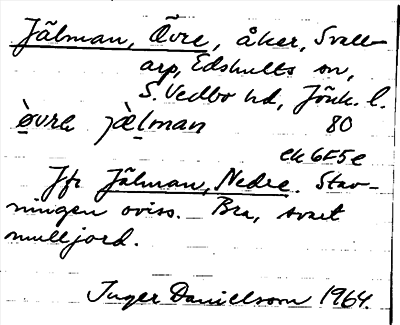 Jälman, Övre, åker, Svall-
arp, Edshults sn,
S. Vedbo hd, Jönk. l.
ø̀vrə jæ̀lman 80
ek 6F5e
Jfr Jälman, Nedre. Stav-
ningen oviss. Bra, svart
mulljord.
Inger Danielsson 1964.